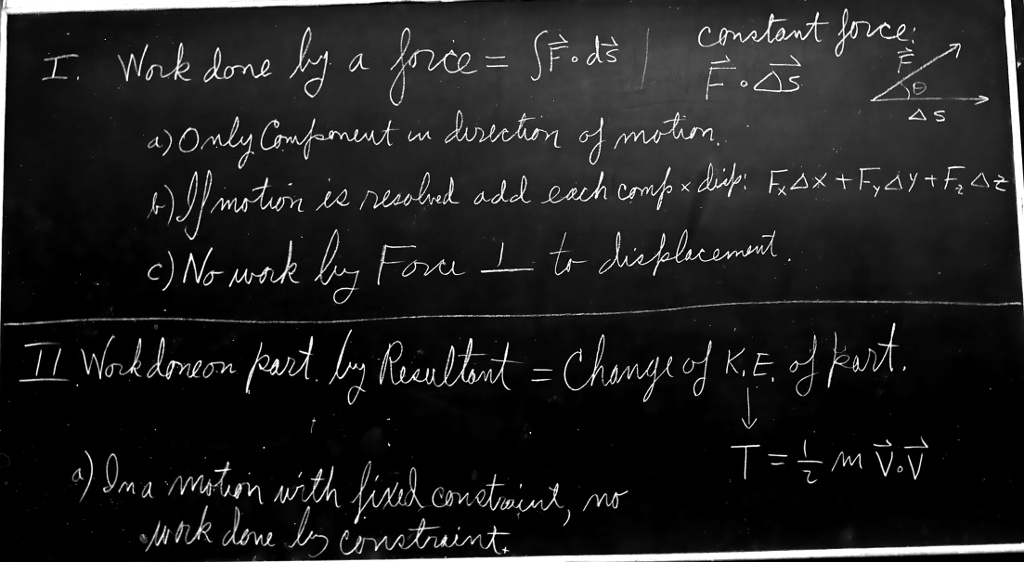 I. Work done by a force = ∫F⃗·ds⃗ | constant force:
F⃗·Δs⃗
F⃗
θ
Δs
a) Only Component in direction of motion.
b) If motion is resolved add each comp × disp: FₓΔx + FᵧΔy + F_zΔz
c) No work by Force ⊥ to displacement.
II Work done on part. by Resultant = Change of K.E. of part.
↓
T = ½ m v⃗·v⃗
a) In a motion with fixed constraint, no
work done by constraint.